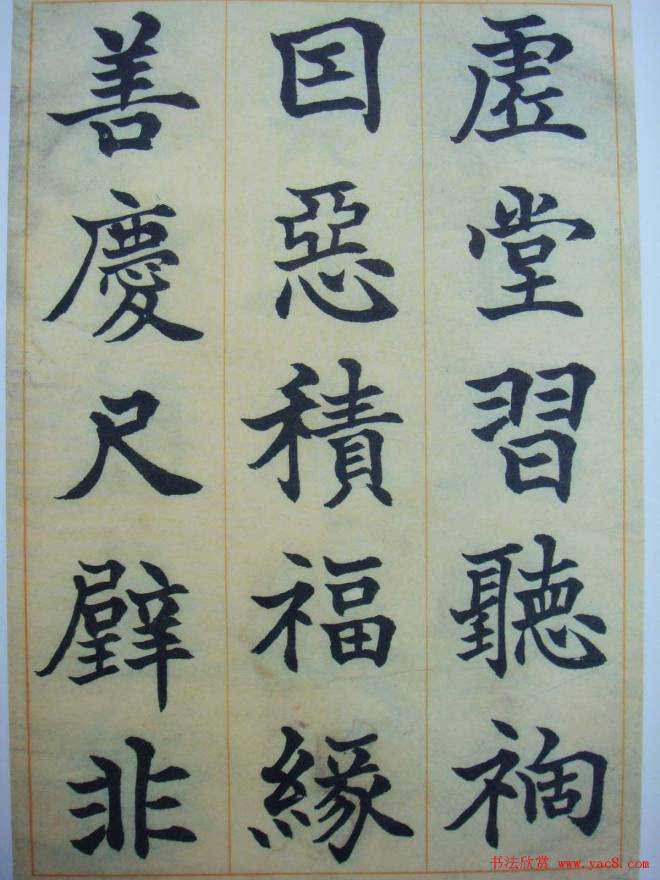 虛堂習聽禍
囙惡積福緣
善慶尺璧非
书法欣赏 www.yac8.com